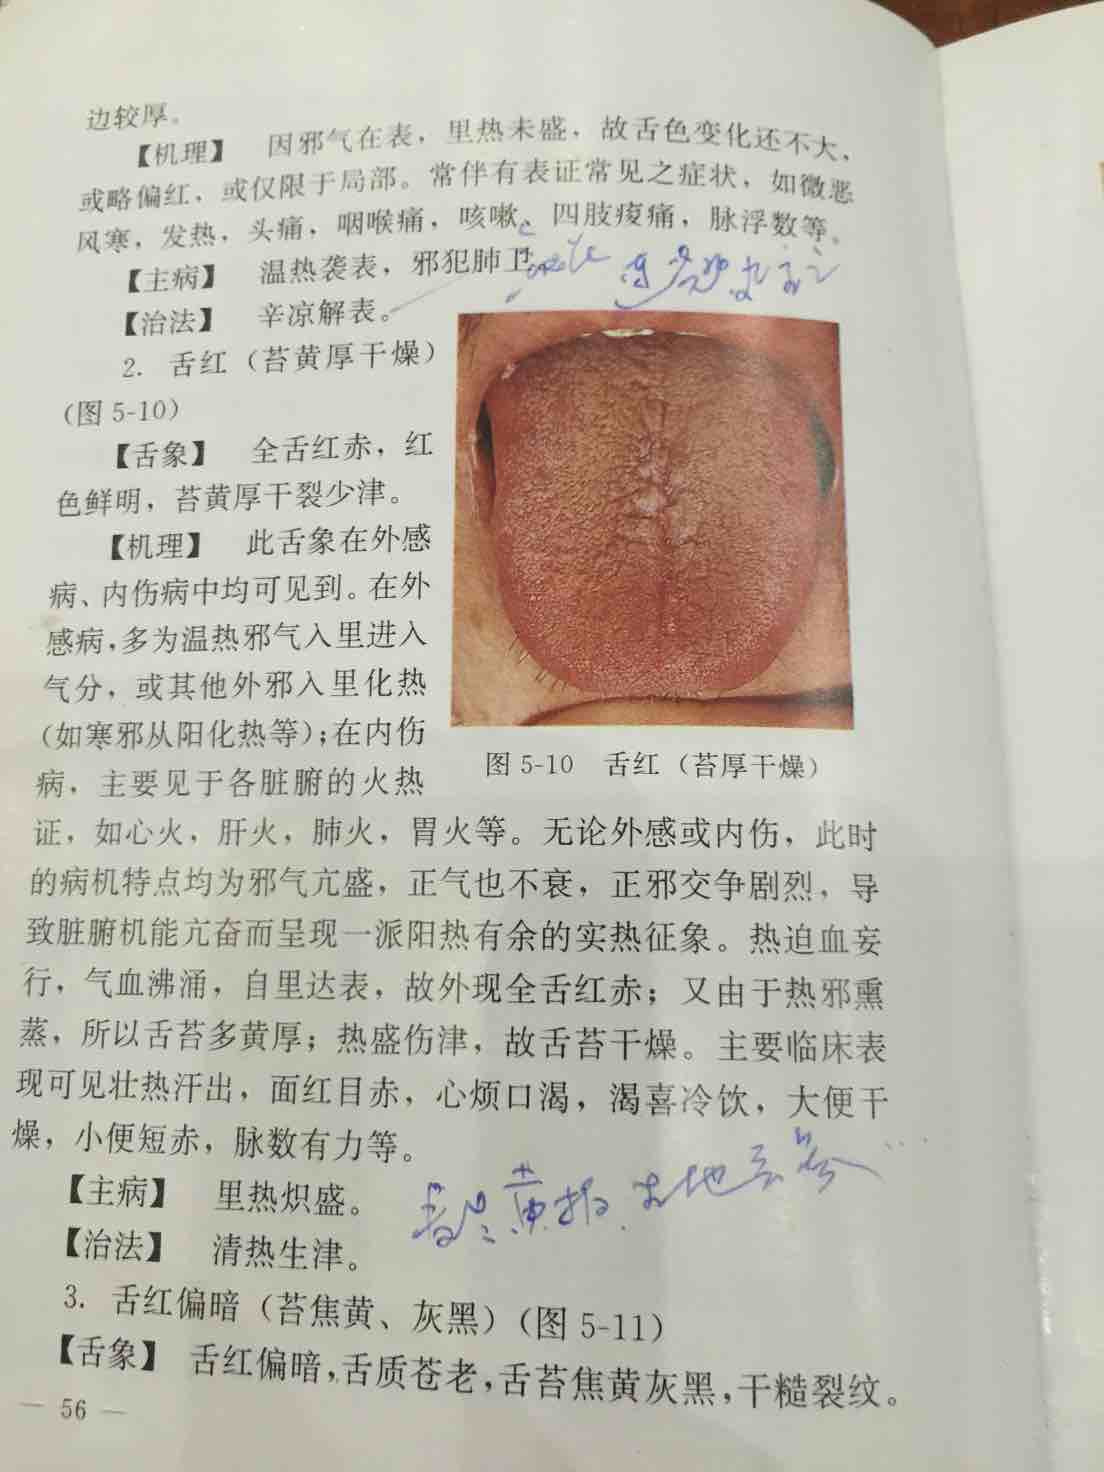 边较厚。
【机理】 因邪气在表，里热未盛，故舌色变化还不大，
或略偏红，或仅限于局部。常伴有表证常见之症状，如微恶
风寒，发热，头痛，咽喉痛，咳嗽，四肢痠痛，脉浮数等。
【主病】 温热袭表，邪犯肺卫。
【治法】 辛凉解表。
2. 舌红（苔黄厚干燥）
（图 5-10）
【舌象】 全舌红赤，红
色鲜明，苔黄厚干裂少津。
【机理】 此舌象在外感
病、内伤病中均可见到。在外
感病，多为温热邪气入里进入
气分，或其他外邪入里化热
（如寒邪从阳化热等）；在内伤
病，主要见于各脏腑的火热
图 5-10 舌红（苔厚干燥）
证，如心火，肝火，肺火，胃火等。无论外感或内伤，此时
的病机特点均为邪气亢盛，正气也不衰，正邪交争剧烈，导
致脏腑机能亢奋而呈现一派阳热有余的实热征象。热迫血妄
行，气血沸涌，自里达表，故外现全舌红赤；又由于热邪熏
蒸，所以舌苔多黄厚；热盛伤津，故舌苔干燥。主要临床表
现可见壮热汗出，面红目赤，心烦口渴，渴喜冷饮，大便干
燥，小便短赤，脉数有力等。
【主病】 里热炽盛。
【治法】 清热生津。
3. 舌红偏暗（苔焦黄、灰黑）（图 5-11）
【舌象】 舌红偏暗，舌质苍老，舌苔焦黄灰黑，干糙裂纹。
— 56 —